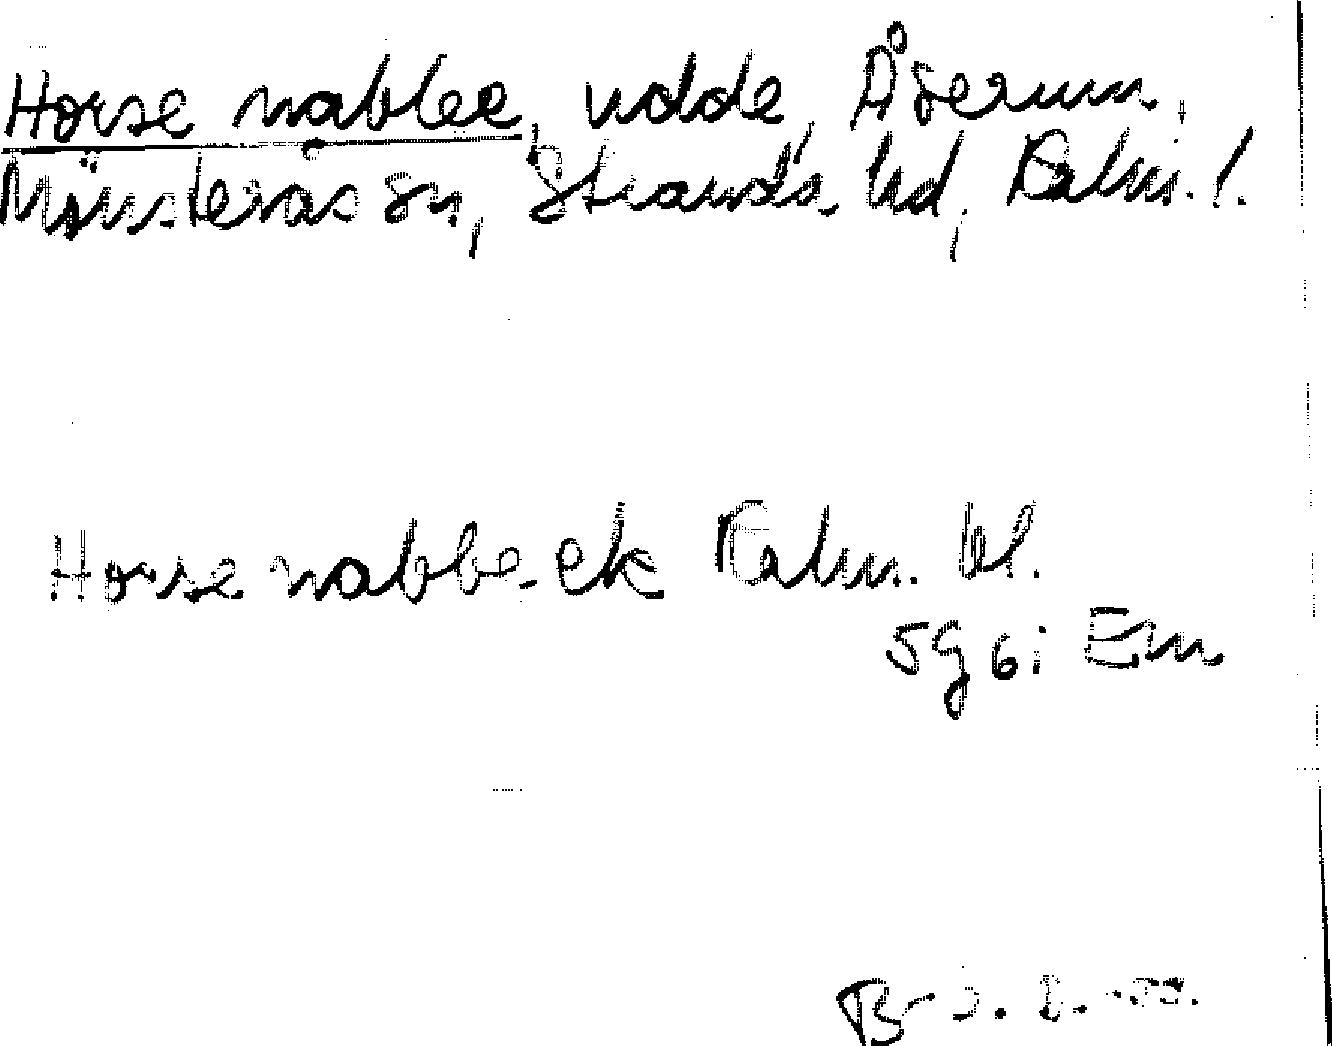 Horse nabbe, udde, Åserum,
Mönsterås sn, Stranda hd, Kalm. l.
Horse nabbe - ek Kalm. bl.
5g 6i Em